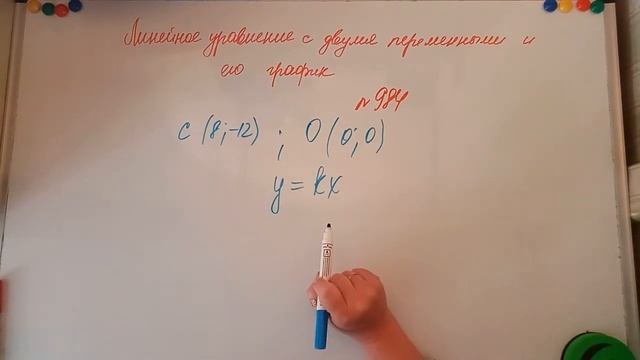 Линейное уравнение с двумя переменными и
его график
№984
C (8;-12) ; O (0;0)
y = kx